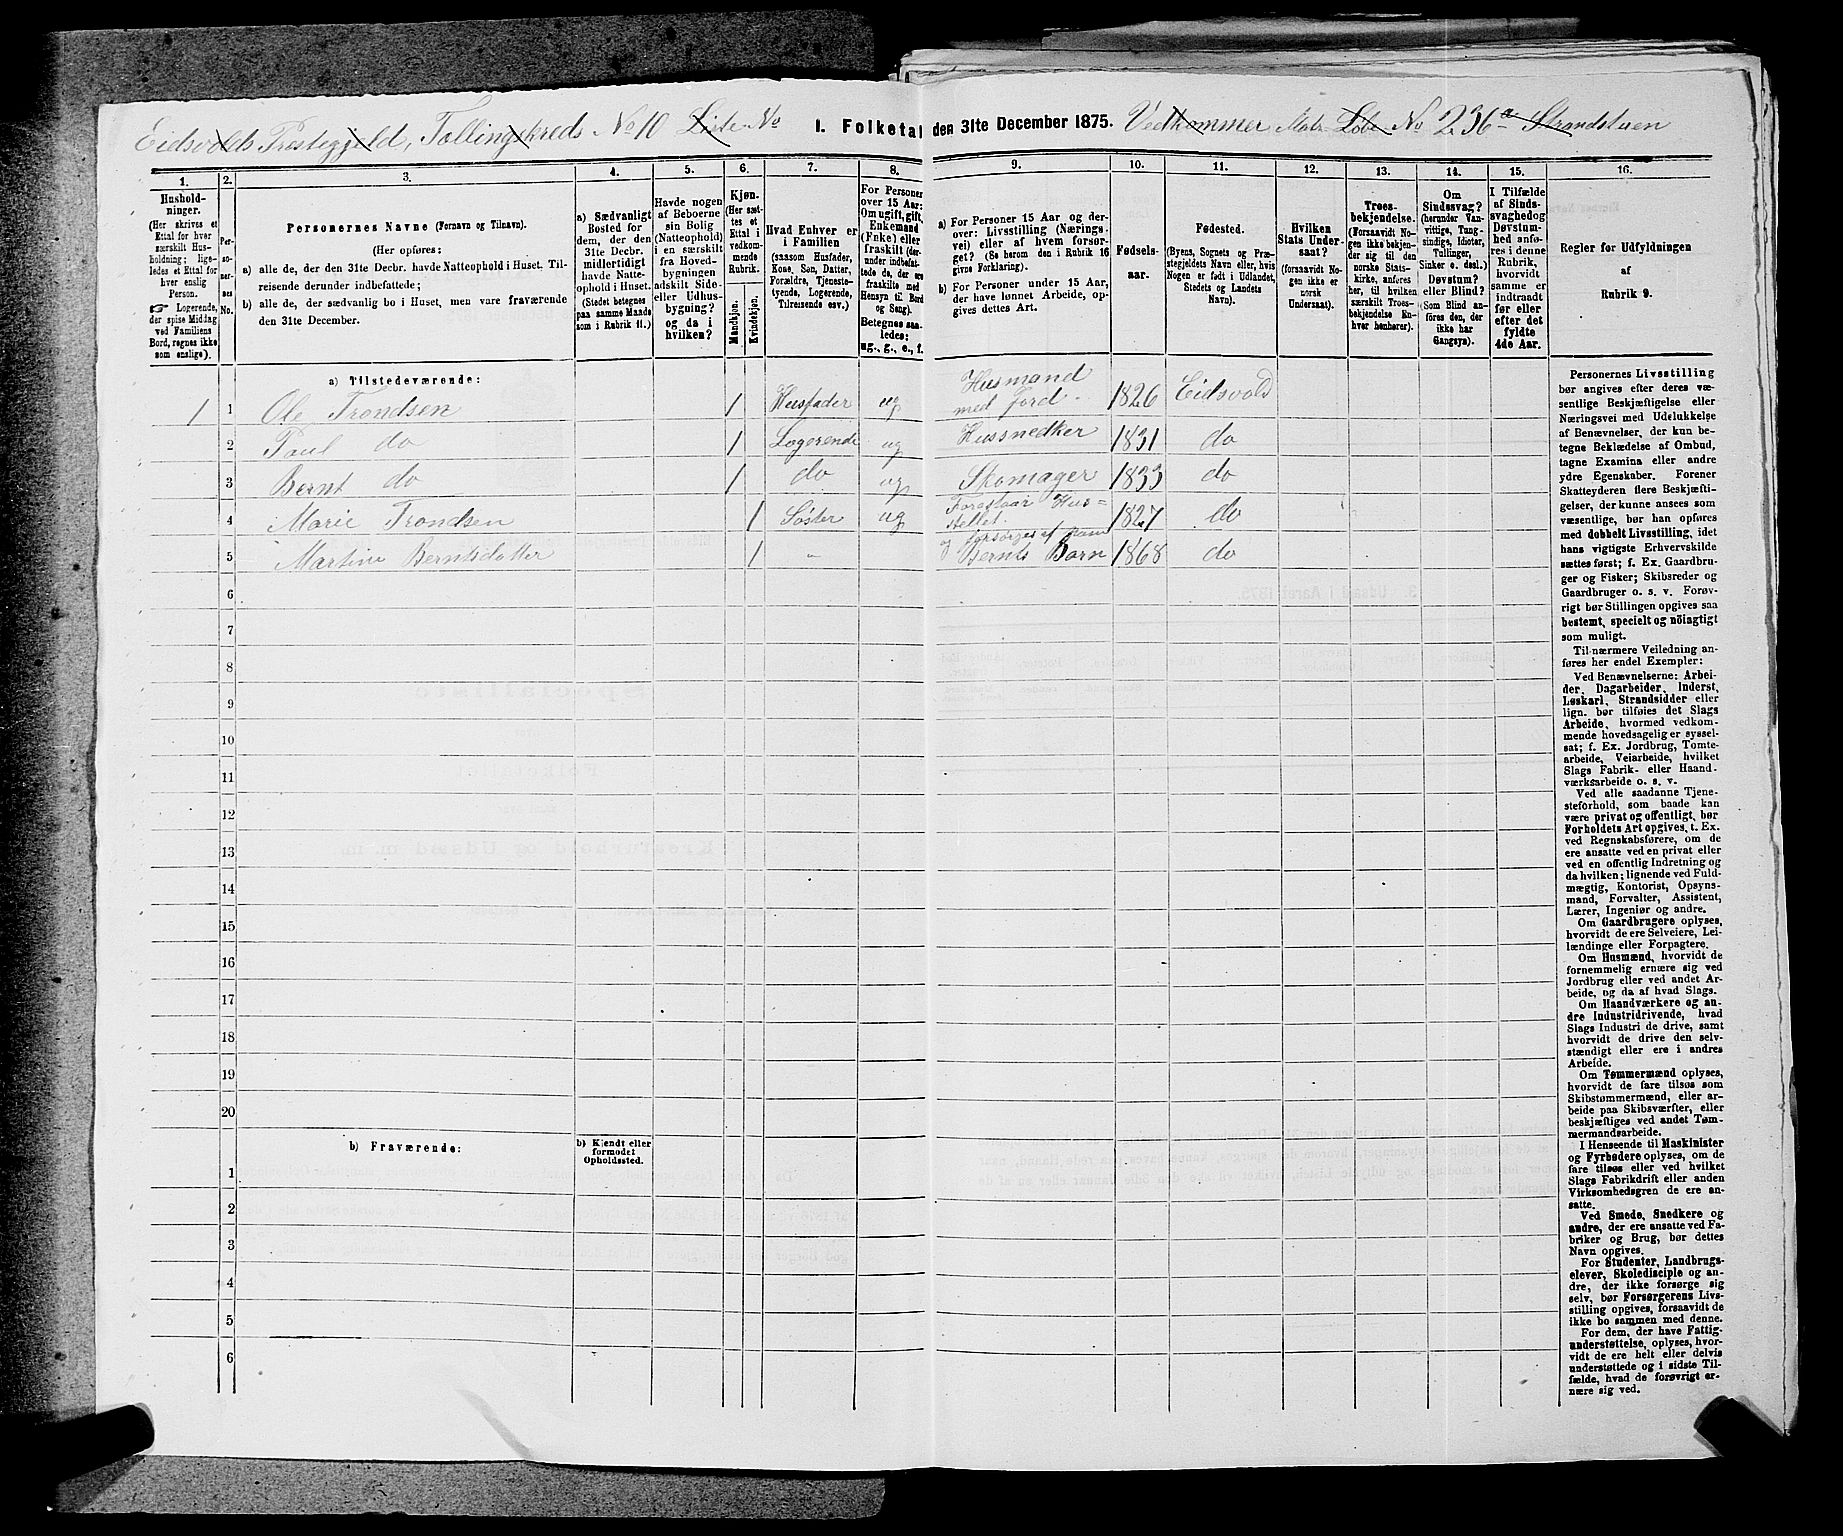 Eidsvolds Prestegjeld, Tællingskreds No 10 Liste No
I. Folketal den 31te December 1875. Vedkommer Matr. Løbe No 236a Strandstuen
1.
Husholdninger.
(Her skrives et
Ettal for hver
særskilt Husholdning; ligeledes
et Ettal for
hver enslig
Person.
Logerende,
der spise Middag
ved Familiens
Bord, regnes ikke
som enslige).
2.
Personernes
No.
3.
Personernes Navne (Fornavn og Tilnavn).
(Her opføres:
a) alle de, der den 31te Decbr. havde Natteophold i Huset. Tilreisende derunder indbefattede;
b) alle de, der sædvanlig bo i Huset, men vare fraværende
den 31te December.
4.
a) Sædvanligt
Bosted for
dem, der den
31te Decbr.
midlertidigt
havde Natteophold i Huset.
(Stedet betegnes
paa samme Maade
som i Rubrik 11.)
5.
Havde nogen
af Beboerne
sin Bolig
(Natteophold)
i en særskilt
fra Hovedbygningen
adskilt Side-
eller Udhusbygning?
og da i
hvilken?
6.
Kjøn.
(Her sættes et
Ettal i
vedkommende
Rubrik.
Mandkjøn.
Kvindekjøn.
7.
Hvad Enhver er
i Familien
(saasom Husfader,
Kone, Søn, Datter,
Forældre, Tjenestetyende, Logerende,
Tilreisende osv.)
8.
For Personer
over 15 Aar:
Om ugift, gift,
Enkemand
(Enke) eller
fraskilt (derunder indbefattede de, der ere
fraskilte med
Hensyn til Bord
og Seng).
Betegnes saaledes:
ug., g., e., f.
9.
a) For Personer 15 Aar og derover: Livsstilling (Næringsvei) eller af hvem forsørget? (Se herom den i Rubrik 16
givne Forklaring).
b) For Personer under 15 Aar,
der have lønnet Arbeide, opgives dettes Art.
10.
Fødselsaar.
11.
Fødested.
(Byens, Sognets og Præstegjeldets Navn eller, hvis
Nogen er født i Udlandet,
Stedets og Landets
Navn).
12.
Hvilken
Stats Undersaat?
(forsaavidt Nogen ikke er
norsk
Undersaat).
13.
Troesbekjendelse.
(Forsaavidt Nogen ikke bekjender sig til den
norske Statskirke, anføres
her, til hvilken
særskilt Troesbekjendelse Enhver henhører).
14.
Om
Sindssvag?
(herunder Vanvittige, Tungsindige, Idioter,
Tullinger,
Sinker o. desl.)
Døvstum?
eller Blind?
(Som Blind anføres den, der
ikke har
Gangsyn).
15.
I Tilfælde
af Sindssvaghed og
Døvstumhed anføres i denne
Rubrik,
hvorvidt
samme er
indtraadt
før eller
efter det
fyldte
4de Aar.
16.
Regler for Udfyldningen
af
Rubrik 9.
a) Tilstedeværende:
1 1 Ole Trondsen 1 Husfader ug Husmand med Jord. 1826 Eidsvold
2 Paul do 1 Logerende ug Hussnedker 1831 do
3 Bernt do 1 do ug Skomager 1833 do
4 Marie Trondsen 1 Søster ug Forestaar Hus=stellet. 1827 do
5 Martine Berntsdatter 1 " og forsørges af Bernts Barn 1868 do
6
7
8
9
10
11
12
13
14
15
16
17
18
19
20
b) Fraværende:
b) Kjendt eller
formodet
Opholdssted.
1
2
3
4
5
6
Personernes Livsstilling
bør angives efter deres væsentlige Beskjæftigelse eller
Næringsvei med Udelukkelse
af Benævnelser, der kun betegne Beklædelse af Ombud,
tagne Examina eller andre
ydre Egenskaber. Forener
Skatteyderen flere Beskjæftigelser, der kunne ansees som
væsentlige, bør han opføres
med dobbelt Livsstilling, idet
hans vigtigste Erhvervskilde
sættes først; f. Ex. Gaardbruger og Fisker; Skibsreder og
Gaardbruger o. s. v. Forøvrigt bør Stillingen opgives saa
bestemt, specielt og nöiagtigt
som muligt.
Til nærmere Veiledning anføres her endel Exempler:
Ved Benævnelserne: Arbeider, Dagarbeider, Inderst,
Løskarl, Strandsidder eller
lign. bør tilføies det Slags
Arbeide, hvormed vedkommende hovedsagelig er sysselsat; f. Ex. Jordbrug, Tomtearbeide, Veiarbeide, hvilket
Slags Fabrik- eller Haandværksarbeide o. s. v.
Ved alle saadanne Tjenesteforhold, som baade kan
være privat og offentligt, bør
Forholdets Art opgives, t. Ex.
ved Regnskabsførere, om de
ere ansatte ved en privat eller
ved en offentlig Indretning og
da hvilken; lignende ved Fuldmægtig, Kontorist, Opsynsmand, Forvalter, Assistent,
Lærer, Ingeniør og andre.
Om Gaardbrugere oplyses,
hvorvidt de ere Selveiere, Leilændinge eller Forpagtere.
Om Husmænd, hvorvidt de
fornemmelig ernære sig ved
Jordbrug eller ved andet Arbeide, og da af hvad Slags.
Om Haandværkere og andre Industridrivende, hvad
Slags Industri de drive, samt
hvorvidt de drive den selvstændigt eller ere i andres
Arbeide.
Om Tømmermænd oplyses,
hvorvidt de fare tilsøs som
Skibstømmermænd, eller arbeide paa Skibsværfter, eller
beskjæftiges ved andet Tømmermandsarbeide.
I Henseende til Maskinister
og Fyrbødere oplyses, om de
fare tilsøs eller ved hvilket
Slags Fabrikdrift eller anden
Virksomhedsgren de ere ansatte.
Ved Smede, Snedkere og
andre, der ere ansatte ved Fabriker og Brug, bør dettes
Navn opgives.
For Studenter, Landbrugselever, Skoledisciple og andre, der ikke forsørge sig
selv, bør Forsørgerens Livsstilling opgives, forsaavidt de
ikke bo sammen med denne.
For dem, der have Fattigunderstøttelse, oplyses, hvorvidt de ere helt eller delvis
understøttede og i sidste Tilfælde, hvad de forøvrigt ernære sig ved.